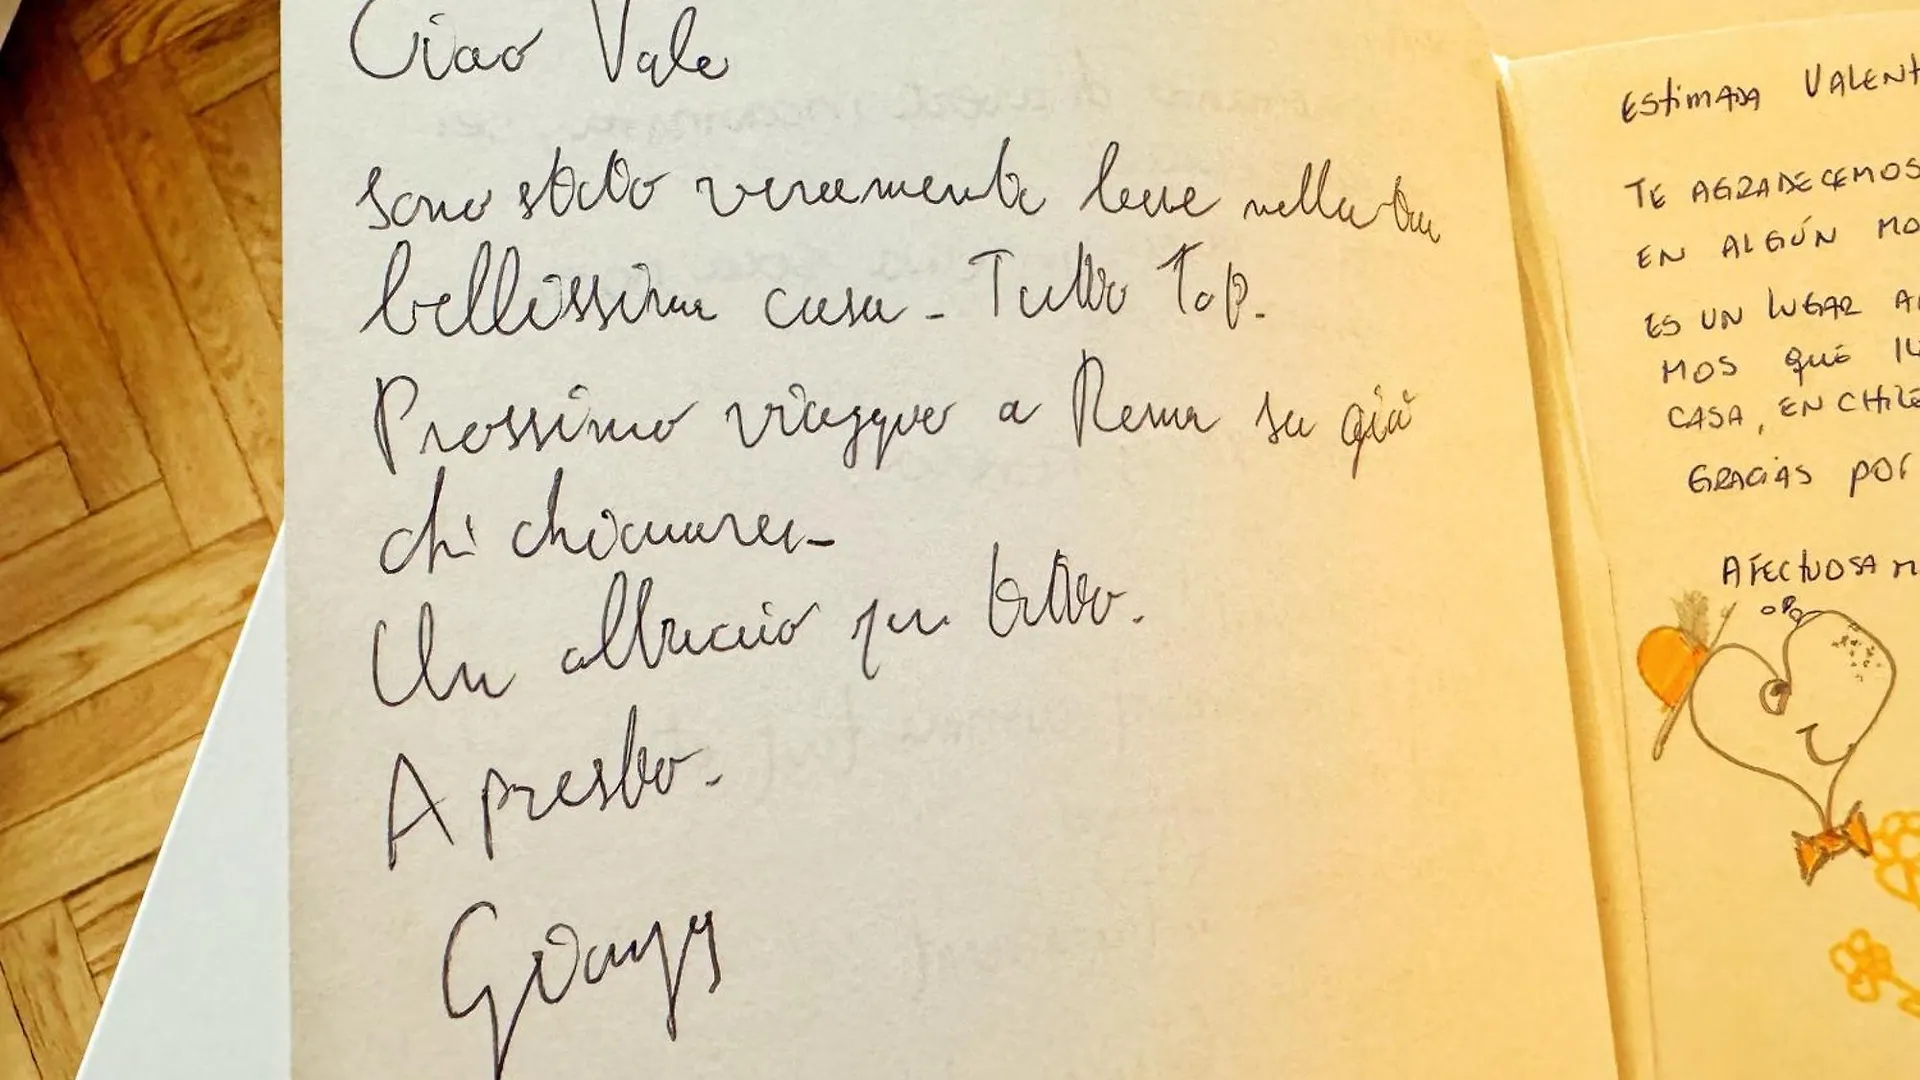 Ciao Vale
sono stato veramente bene nella tua
bellissima casa - Tutto Top.
Prossimo viaggio a Roma so già
chi chiamare -
Un abbraccio per tutto.
A presto.
ESTIMADA VALENT
TE AGRADECEMOS
EN ALGÚN MO
ES UN LUGAR
MOS QUÉ
CASA, EN CHILE
GRACIAS POR
AFECTUOSAM